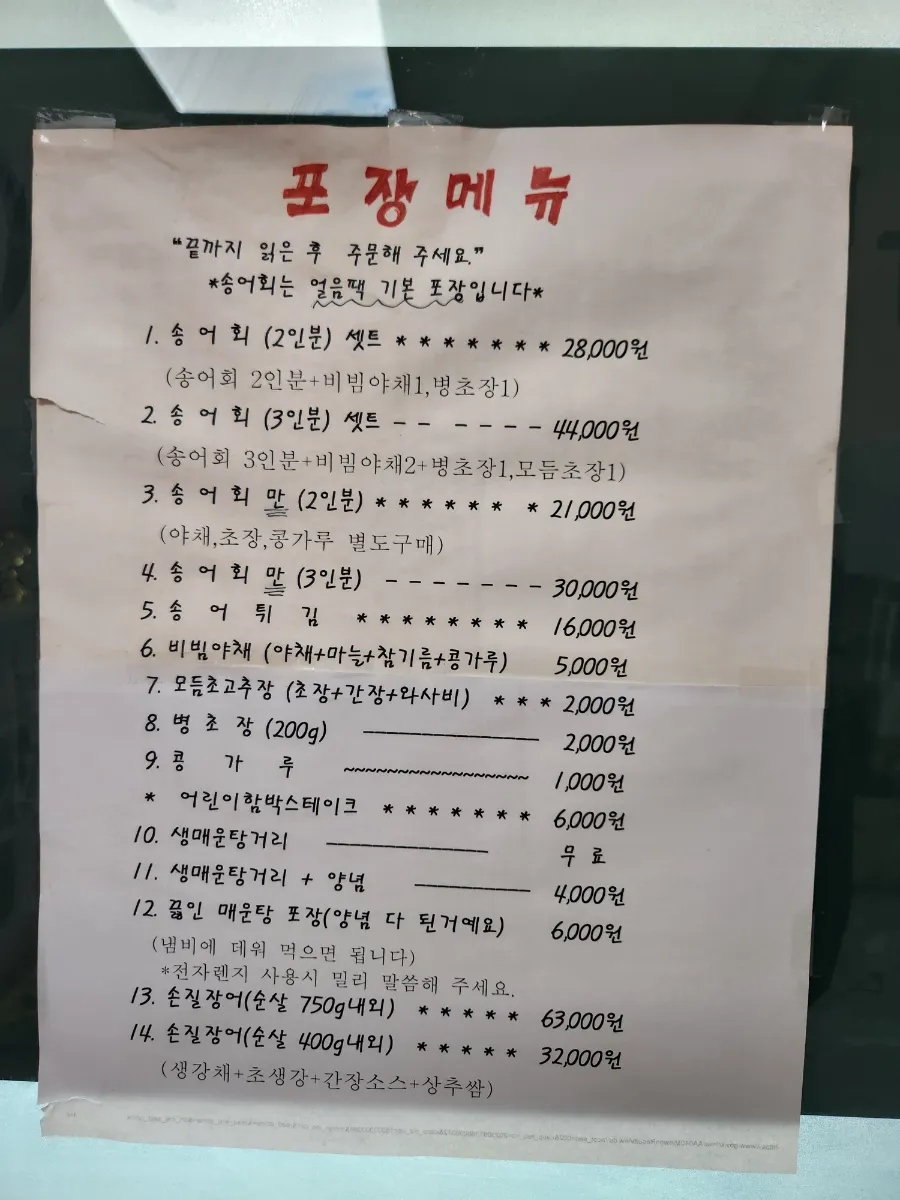 포장메뉴
“끝까지 읽은 후 주문해 주세요.”
*송어회는 얼음팩 기본 포장입니다*
1. 송어회 (2인분) 셋트 * * * * * * * 28,000원
(송어회 2인분+비빔야채1,병초장1)
2. 송어회 (3인분) 셋트 – – – – – – 44,000원
(송어회 3인분+비빔야채2+병초장1,모듬초장1)
3. 송어회 만 (2인분) * * * * * * * 21,000원
(야채,초장,콩가루 별도구매)
4. 송어회 만 (3인분) – – – – – – – 30,000원
5. 송어튀김 * * * * * * * * 16,000원
6. 비빔야채 (야채+마늘+참기름+콩가루) 5,000원
7. 모듬초고추장 (초장+간장+와사비) * * * 2,000원
8. 병초장 (200g) ―――――― 2,000원
9. 콩가루 ~~~~~~~~~~~~~~~~~ 1,000원
* 어린이함박스테이크 * * * * * * * 6,000원
10. 생매운탕거리 ―――――― 무료
11. 생매운탕거리 + 양념 ―――― 4,000원
12. 끓인 매운탕 포장(양념 다 된거예요) 6,000원
(냄비에 데워 먹으면 됩니다)
*전자렌지 사용시 밀리 말씀해 주세요.
13. 손질장어(순살 750g내외) * * * * * 63,000원
14. 손질장어(순살 400g내외) * * * * * 32,000원
(생강채+초생강+간장소스+상추쌈)